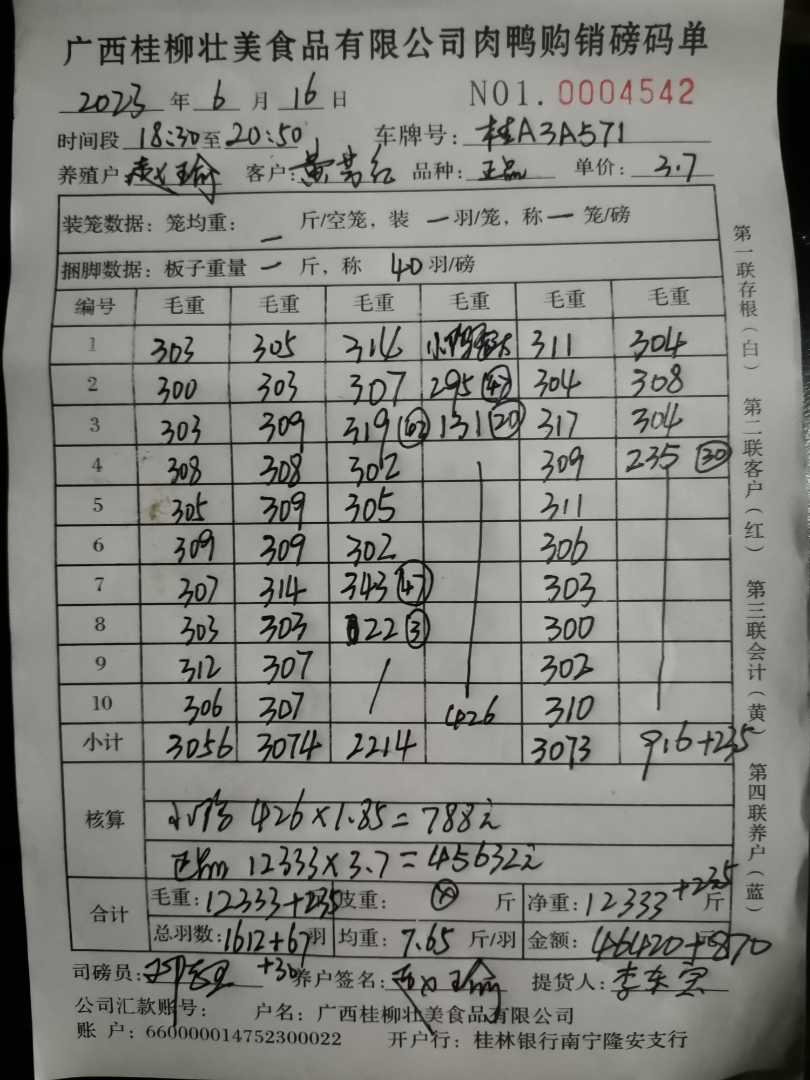 广西桂柳壮美食品有限公司肉鸭购销磅码单
2023 年 6 月 16 日 NO1. 0004542
时间段 18:30 至 20:50 车牌号: 桂A3A571
养殖户 赵瑜 客户: 黄 品种: 正品 单价: 3.7
装笼数据: 笼均重: 一 斤/空笼, 装 一 羽/笼, 称 一 笼/磅
捆脚数据: 板子重量 一 斤, 称 40 羽/磅
编号 毛重 毛重 毛重 毛重 毛重 毛重
1 303 305 314 小鸭 311 304
2 300 303 307 295 304 308
3 303 309 319 131 (20) 317 304
4 308 308 302 309 235 (30)
5 305 309 305 311
6 309 309 302 306
7 307 314 343 (47) 303
8 303 303 22 (3) 300
9 312 307 / 302
10 306 307 / 426 310
小计 3056 3074 2214 3073 916+235
核算
小鸭 426×1.85=788元
正品 12333×3.7=45632元
合计 毛重: 12333+235 皮重: 斤 净重: 12333+235 斤
总羽数: 1612+67 羽 均重: 7.65 斤/羽 金额: 46420+870
+30
司磅员: 养户签名: 赵瑜 提货人: 李东
公司汇款账号: 户名: 广西桂柳壮美食品有限公司
账 户: 660000014752300022 开户行: 桂林银行南宁隆安支行
第一联存根(白) 第二联客户(红) 第三联会计(黄) 第四联养户(蓝)